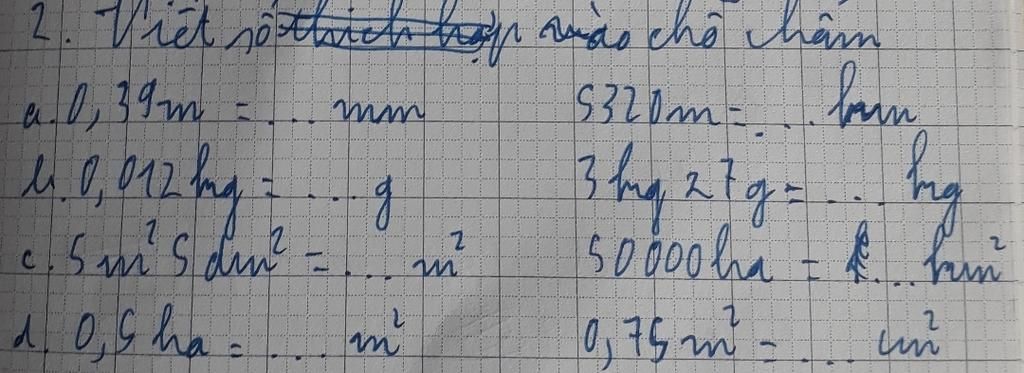 2. Viết số thích hợp vào chỗ chấm
a. 0,39m = ... mm 5320m = ... km
b. 0,012kg = ... g 3kg 27g = ... kg
c. 5m² 5dm² = ... m² 50000ha = ... km²
d. 0,5ha = ... m² 0,75m² = ... cm²